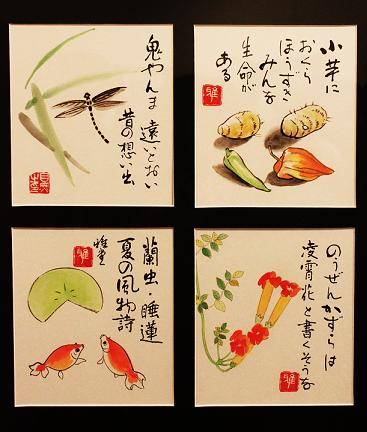 鬼やんま 遠いとおい
昔の想い出
小芋に
おくら
ほうずき
みんな
生命が
ある
雅
蘭虫・睡蓮
夏の風物詩
雅堂
雅
のうぜんかずらは
凌霄花と書くそうな
雅